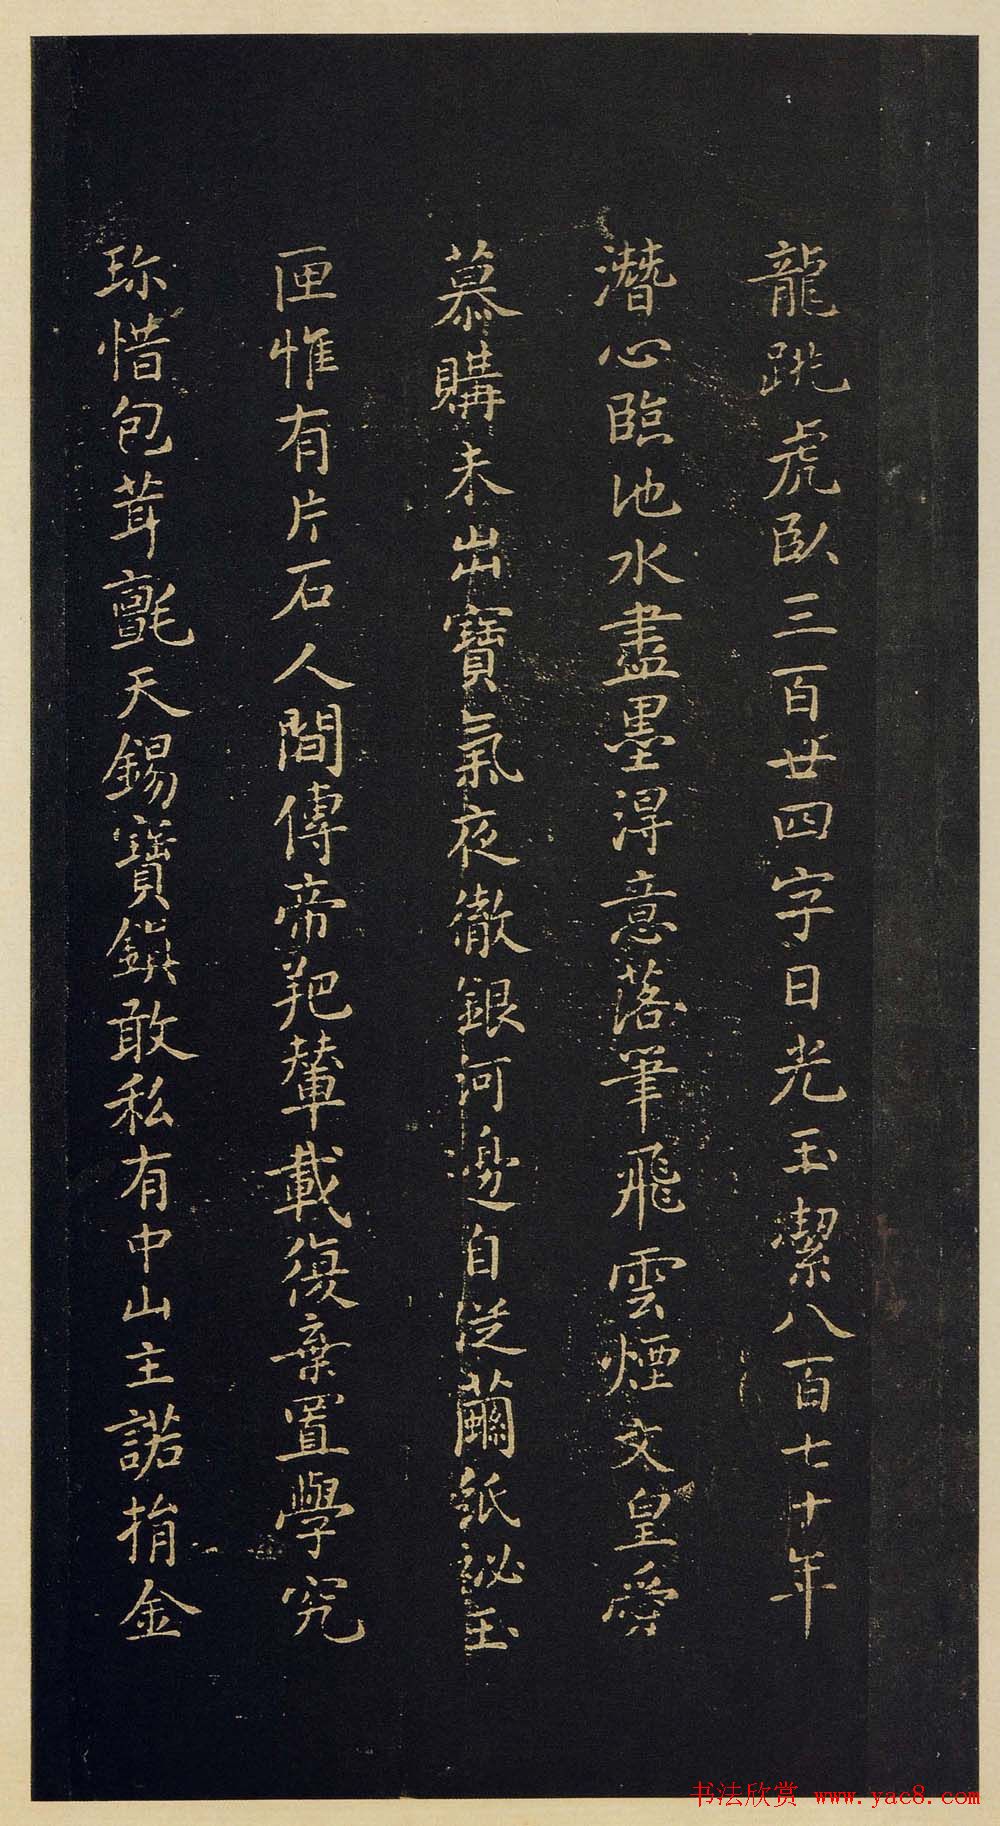 龍跳虎臥三百廿四字日光玉潔八百七十年
潛心臨池水盡墨淂意落筆飛雲煙文皇愛
慕購未出寶氣夜徹銀河邊自從繭紙祕玉
匣惟有片石人間傳帝羓輦載復棄置學究
珎惜包茸氈天錫寶鎮敢私有中山主諾捐金
书法欣赏 www.yac8.com